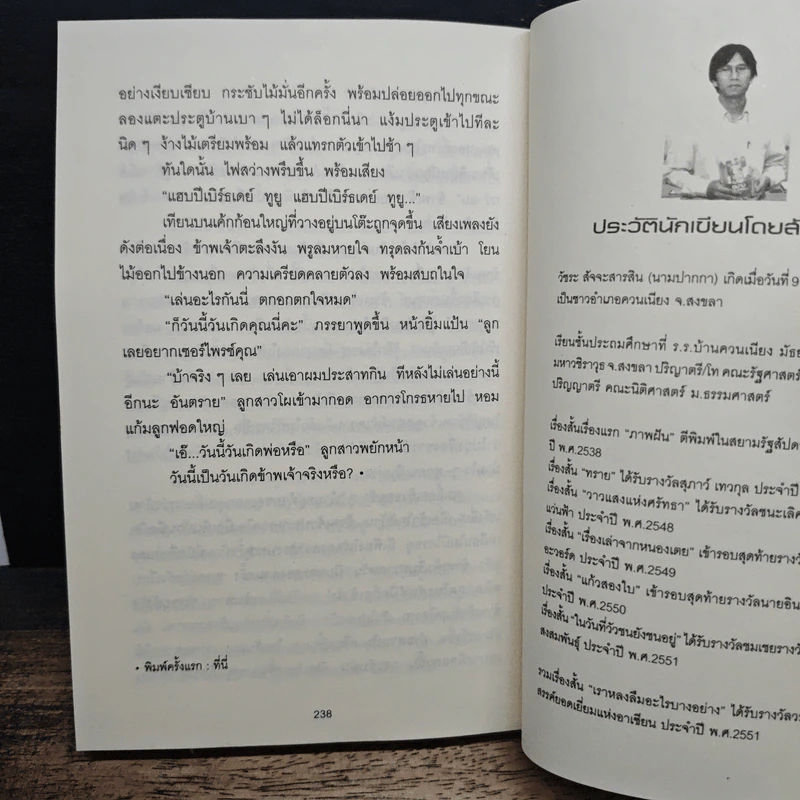 อย่างเงียบเชียบ กระชับไม้มั่นอีกครั้ง พร้อมปล่อยออกไปทุกขณะ
ลองแตะประตูบ้านเบา ๆ ไม่ได้ล็อกนี่นา แง้มประตูเข้าไปทีละ
นิด ๆ ง้างไม้เตรียมพร้อม แล้วแทรกตัวเข้าไปช้า ๆ
ทันใดนั้น ไฟสว่างพรึบขึ้น พร้อมเสียง
“แฮบปีเบิร์ธเดย์ ทูยู แฮบปีเบิร์ธเดย์ ทูยู...”
เทียนบนเค้กก้อนใหญ่ที่วางอยู่บนโต๊ะถูกจุดขึ้น เสียงเพลงยัง
ดังต่อเนื่อง ข้าพเจ้าตะลึงงัน พรูลมหายใจ ทรุดลงก้นจ้ำเบ้า โยน
ไม้ออกไปข้างนอก ความเครียดคลายตัวลง พร้อมสบถในใจ
“เล่นอะไรกันนี่ ตกอกตกใจหมด”
“ก็วันนี้วันเกิดคุณนี่คะ” ภรรยาพูดขึ้น หน้ายิ้มแป้น “ลูก
เลยอยากเซอร์ไพรซ์คุณ”
“บ้าจริง ๆ เลย เล่นเอาผมประสาทกิน ทีหลังไม่เล่นอย่างนี้
อีกนะ อันตราย” ลูกสาวโผเข้ามากอด อาการโกรธหายไป หอม
แก้มลูกฟอดใหญ่
“เอ๊...วันนี้วันเกิดพ่อหรือ” ลูกสาวพยักหน้า
วันนี้เป็นวันเกิดข้าพเจ้าจริงหรือ? •
• พิมพ์ครั้งแรก : ที่นี่
238
ประวัตินักเขียนโดยสั
วัชระ สัจจะสารสิน (นามปากกา) เกิดเมื่อวันที่ 9
เป็นชาวอำเภอควนเนียง จ.สงขลา
เรียนชั้นประถมศึกษาที่ ร.ร.บ้านควนเนียง มัธย
มหาวชิราวุธ จ.สงขลา ปริญาตรี/โท คณะรัฐศาสตร์
ปริญญาตรี คณะนิติศาสตร์ ม.ธรรมศาสตร์
เรื่องสั้นเรื่องแรก “ภาพฝัน” ตีพิมพ์ในสยามรัฐสัปด
ปี พ.ศ.2538
เรื่องสั้น “ทราย” ได้รับรางวัลสุภาว์ เทวกุล ประจำปี
เรื่องสั้น “วาวแสงแห่งศรัทธา” ได้รับรางวัลชนะเลิศ
แว่นฟ้า ประจำปี พ.ศ.2548
เรื่องสั้น “เรื่องเล่าจากหนองเตย” เข้ารอบสุดท้ายรางวัล
อะวอร์ด ประจำปี พ.ศ.2549
เรื่องสั้น “แก้วสองใบ” เข้ารอบสุดท้ายรางวัลนายอิน
ประจำปี พ.ศ.2550
เรื่องสั้น “ในวันที่วัวชนยังชนอยู่” ได้รับรางวัลชมเชยรางวั
สงสมพันธุ์ ประจำปี พ.ศ.2551
รวมเรื่องสั้น “เราหลงลืมอะไรบางอย่าง” ได้รับรางวัลวร
สรรค์ยอดเยี่ยมแห่งอาเซียน ประจำปี พ.ศ.2551